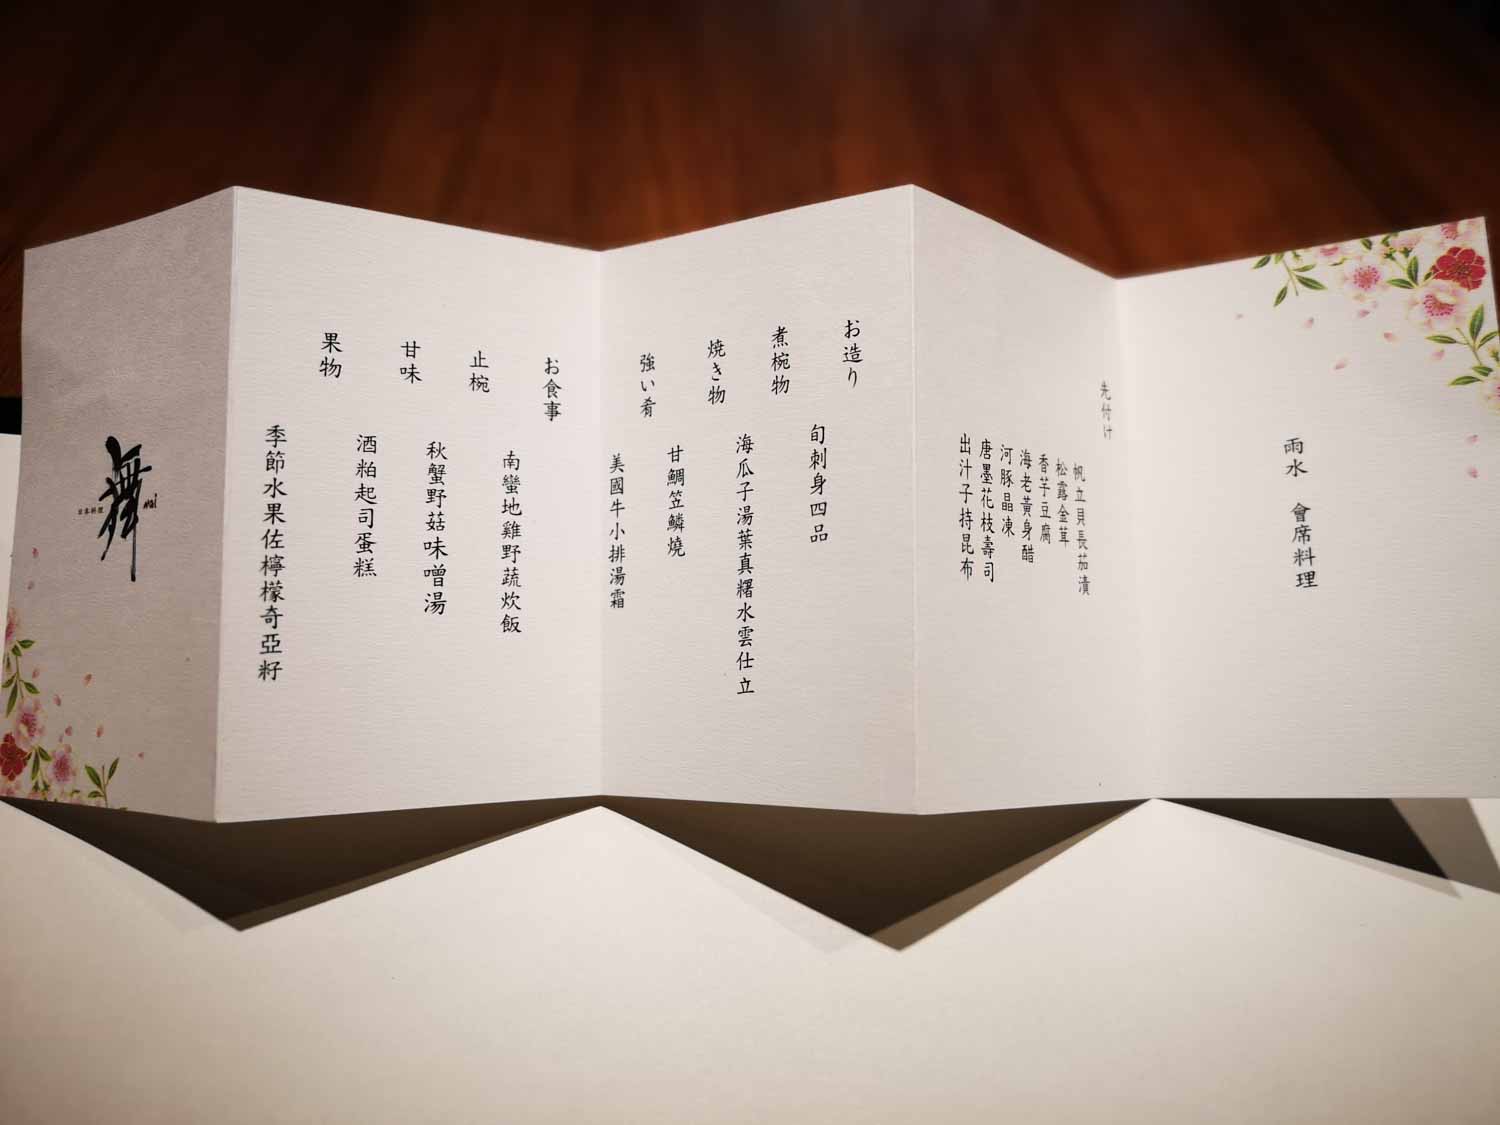 雨水　會席料理
先付け
帆立貝長茄漬
松露金茸
香芋豆腐
海老黃身醋
河豚晶凍
唐墨花枝壽司
出汁子持昆布
お造り
旬刺身四品
煮椀物
海瓜子湯葉真糬水雲仕立
焼き物
甘鯛笠鱗燒
強い肴
美國牛小排湯霜
お食事
南蠻地雞野蔬炊飯
止椀
秋蟹野菇味噌湯
甘味
酒粕起司蛋糕
果物
季節水果佐檸檬奇亞籽
舞
日本料理
mai